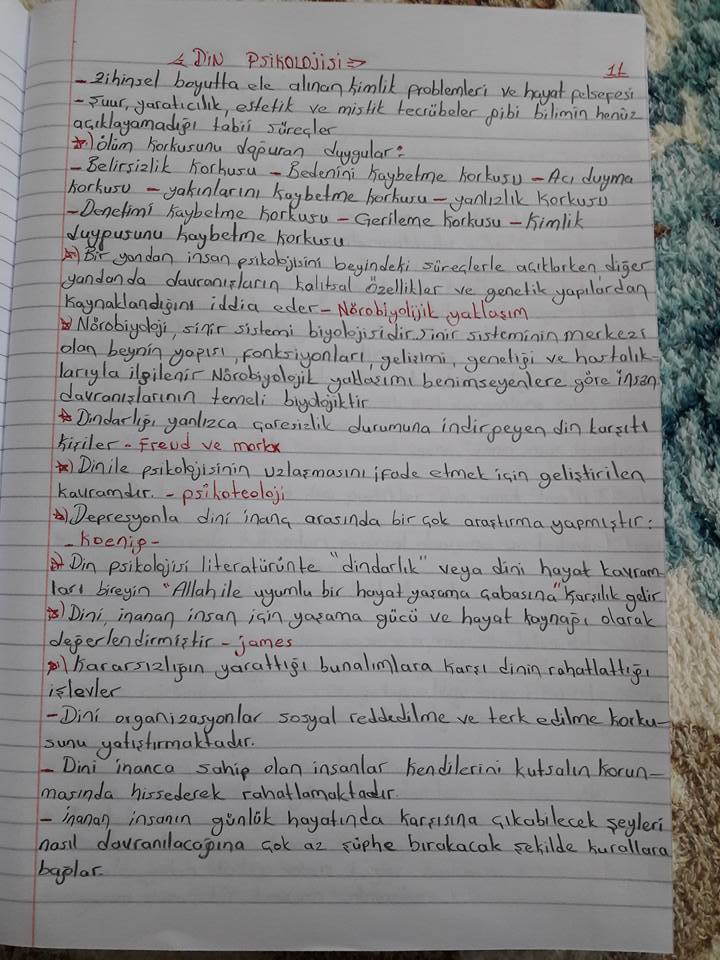 DİN PSİKOLOJİSİ
11
- Zihinsel boyutta ele alınan kimlik problemleri ve hayat felsefesi
- Şuur, yaratıcılık, estetik ve mistik tecrübeler gibi bilimin henüz
açıklayamadığı tabii süreçler
*) Ölüm korkusunu doğuran duygular:
- Belirsizlik korkusu - Bedenini kaybetme korkusu - Acı duyma
korkusu - yakınlarını kaybetme korkusu - yanlızlık korkusu
- Denetimi kaybetme korkusu - Gerileme korkusu - Kimlik
duygusunu kaybetme korkusu
*) Bir yandan insan psikolojisini beyindeki süreçlerle açıklarken, diğer
yandanda davranışların kalıtsal özellikler ve genetik yapılardan
kaynaklandığını iddia eder - Nörobiyolijik yaklaşım
*) Nörobiyoloji, sinir sistemi biyolojisidir. sinir sisteminin merkezi
olan beynin yapısı, fonksiyonları, gelişimi, genetiği ve hastalık-
larıyla ilgilenir Nörobiyolojik yaklaşımı benimseyenlere göre insan
davranışlarının temeli biyolojiktir
*) Dindarlığı yanlızca çaresizlik durumuna indirgeyen din karşıtı
kişiler - Freud ve marks
*) Dinile psikolojisinin uzlaşmasını ifade etmek için geliştirilen
kavramdır. - psikoteoloji
*) Depresyonla dini inanç arasında bir çok araştırma yapmıştır:
- Koenig -
*) Din psikolojisi literatürünte "dindarlık" veya dini hayat kavram-
ları bireyin "Allah ile uyumlu bir hayat yaşama çabasına" karşılık gelir
*) Dini, inanan insan için yaşama gücü ve hayat kaynağı olarak
değerlendirmiştir - james
*) Kararsızlığın yarattığı bunalımlara karşı dinin rahatlattığı
işlevler
- Dini organizasyonlar sosyal reddedilme ve terk edilme korku-
sunu yatıştırmaktadır.
- Dini inanca sahip olan insanlar kendilerini kutsalın korun-
masında hissederek rahatlamaktadır.
- inanan insanın günlük hayatında karşısına çıkabilecek şeyleri
nasıl davranılacağına çok az şüphe bırakacak şekilde kurallara
bağlar.